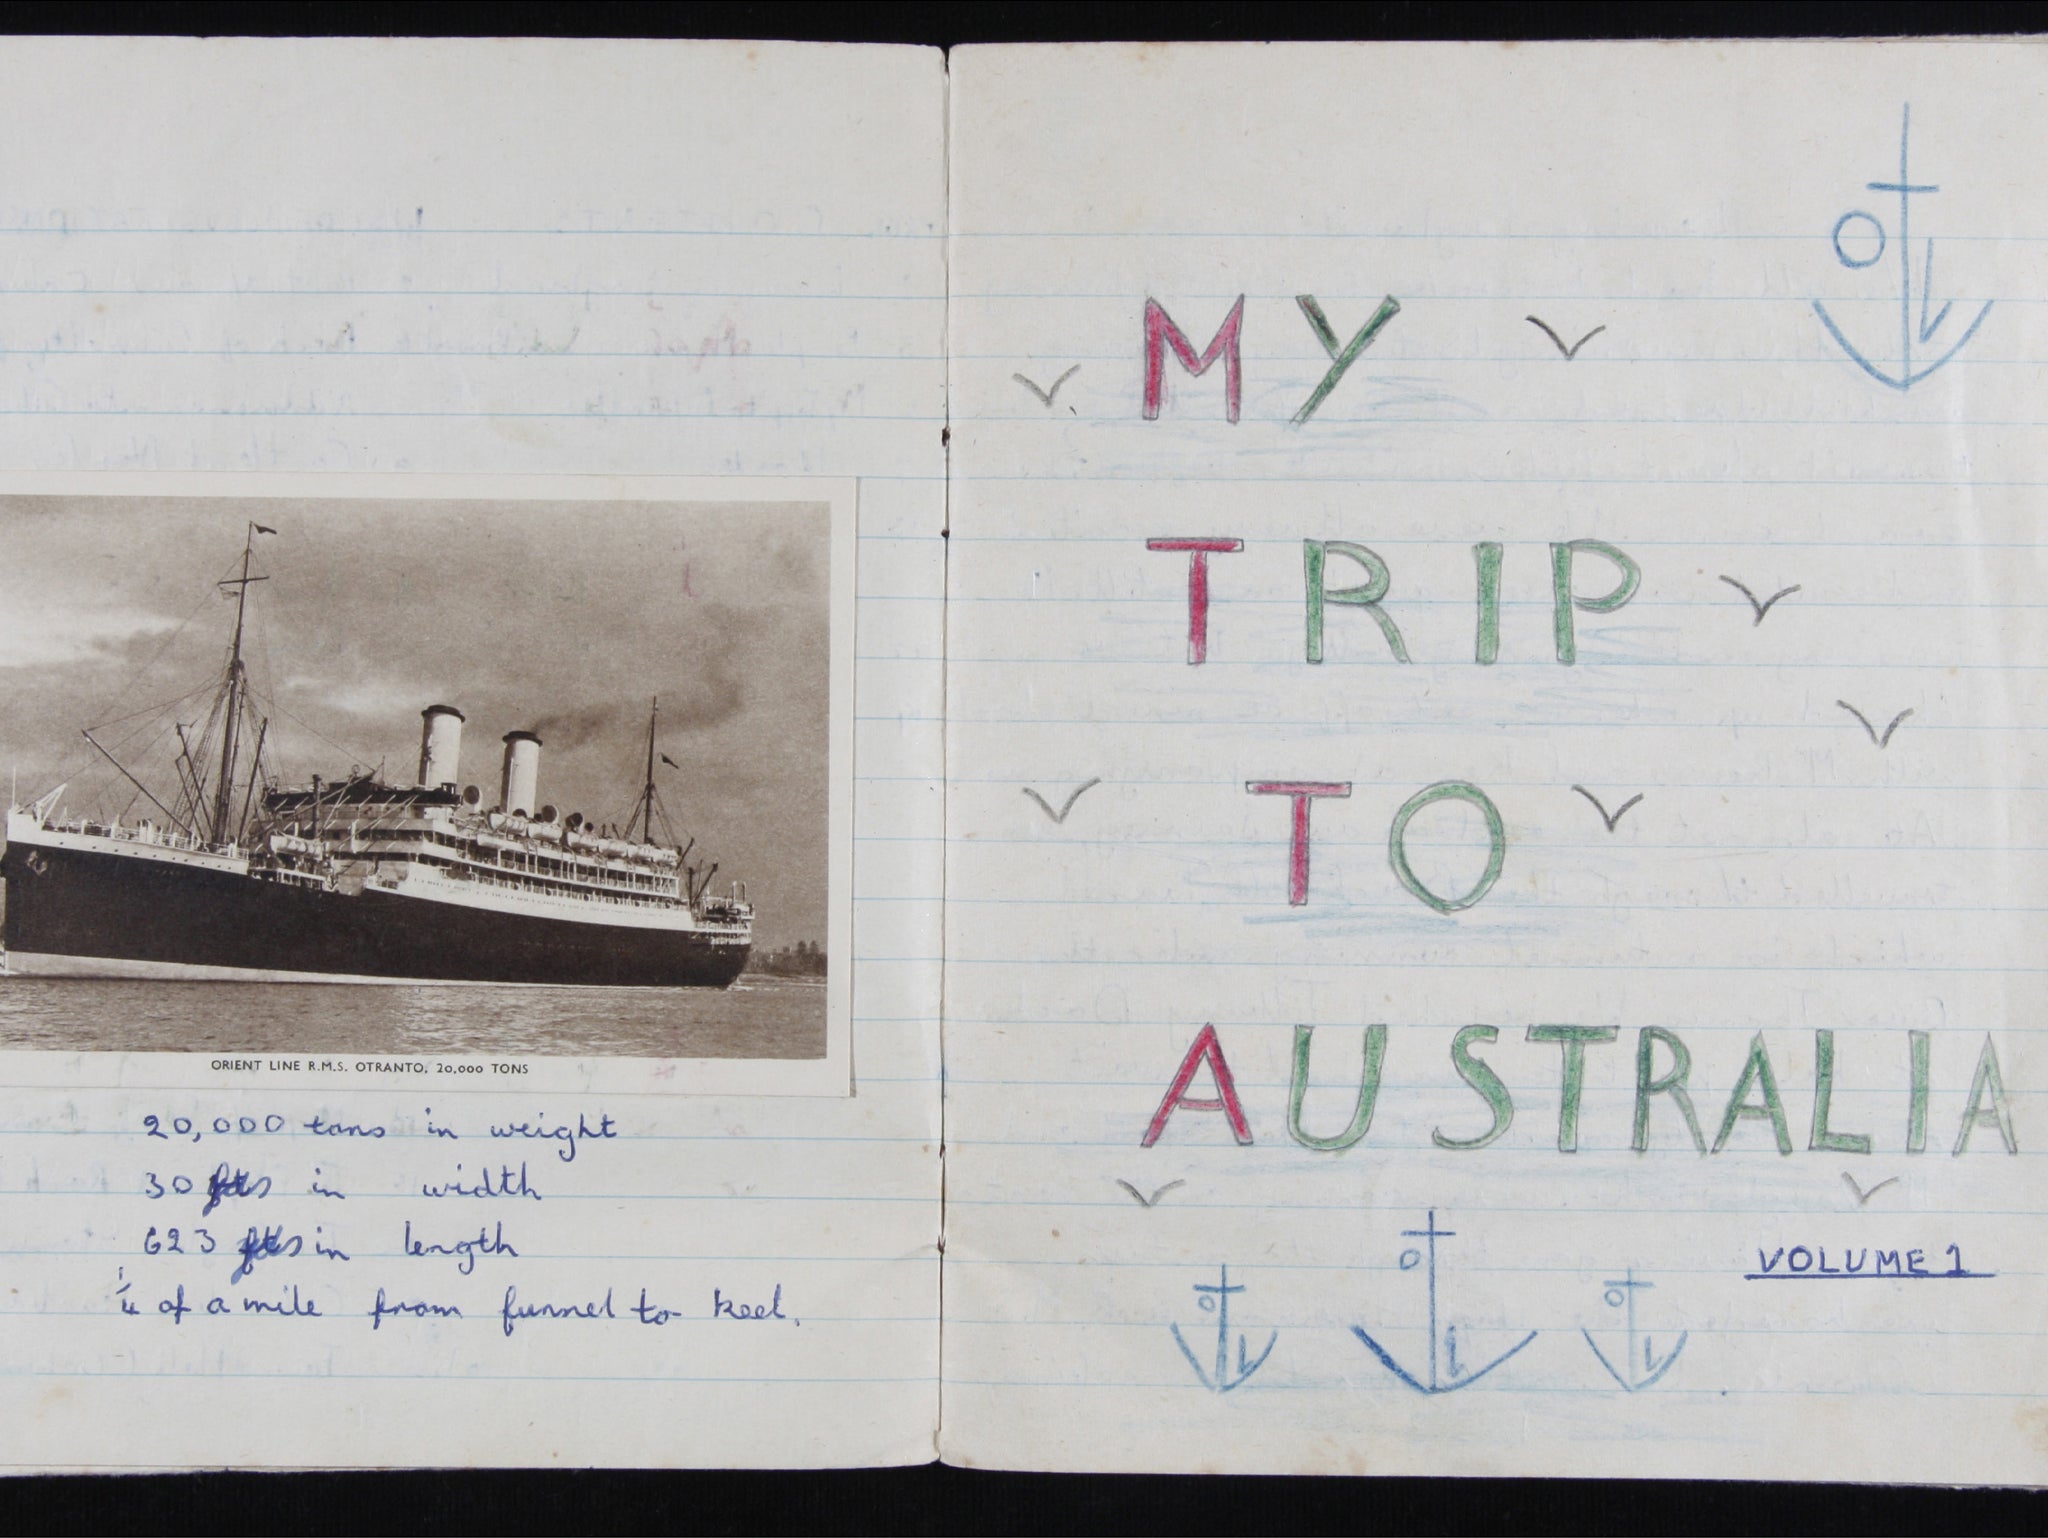 ORIENT LINE R.M.S. OTRANTO, 20,000 TONS
20,000 tons in weight
30 fts in width
623 fts in length
1/4 of a mile from funnel to keel.
MY
TRIP
TO
AUSTRALIA
VOLUME 1